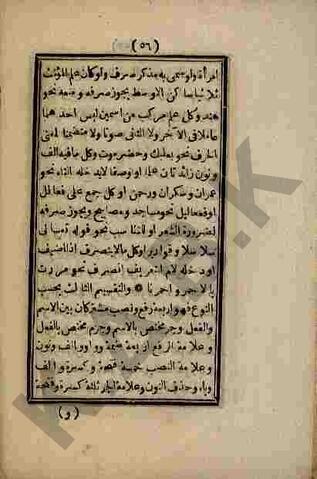 (٥٦)
امرأة ولو سمى به مذكر صرف ولو كان علم المؤنث
ثلاثيا ساكن الاوسط يجوز صرفه ومنعه نحو
هند وكل علم مركب من اسمين ليس احدهما
عاملا فى الآخر ولا الثانى صوتا ولا متضمنا لمعنى
الحرف نحو بعلبك وحضرموت وكل ما فيه الف
ونون زائدتان علما او وصفا لا يدخله التاء نحو
عمران وسكران ورحمن او كل جمع على فعالل
او فعاليل نحو مساجد ومصابيح ويجوز صرفه
لضرورة الشعر او للتناسب نحو قوله تعالى
سلاسلا وقواريرا وكل ما لا ينصرف اذا اضيف
او دخله لام التعريف انصرف نحو مررت
بالاحمر واحمرنا * والتقسيم الثالث بحسب
النوع فهو اربعة رفع ونصب مشتركان بين الاسم
والفعل وجر مختص بالاسم وجزم مختص بالفعل
وعلامة الرفع اربعة ضمة وواو والف ونون
وعلامة النصب خمسة فتحة وكسرة والف
وياء وحذف النون وعلامة الجر ثلثة كسرة وفتحة
(و)